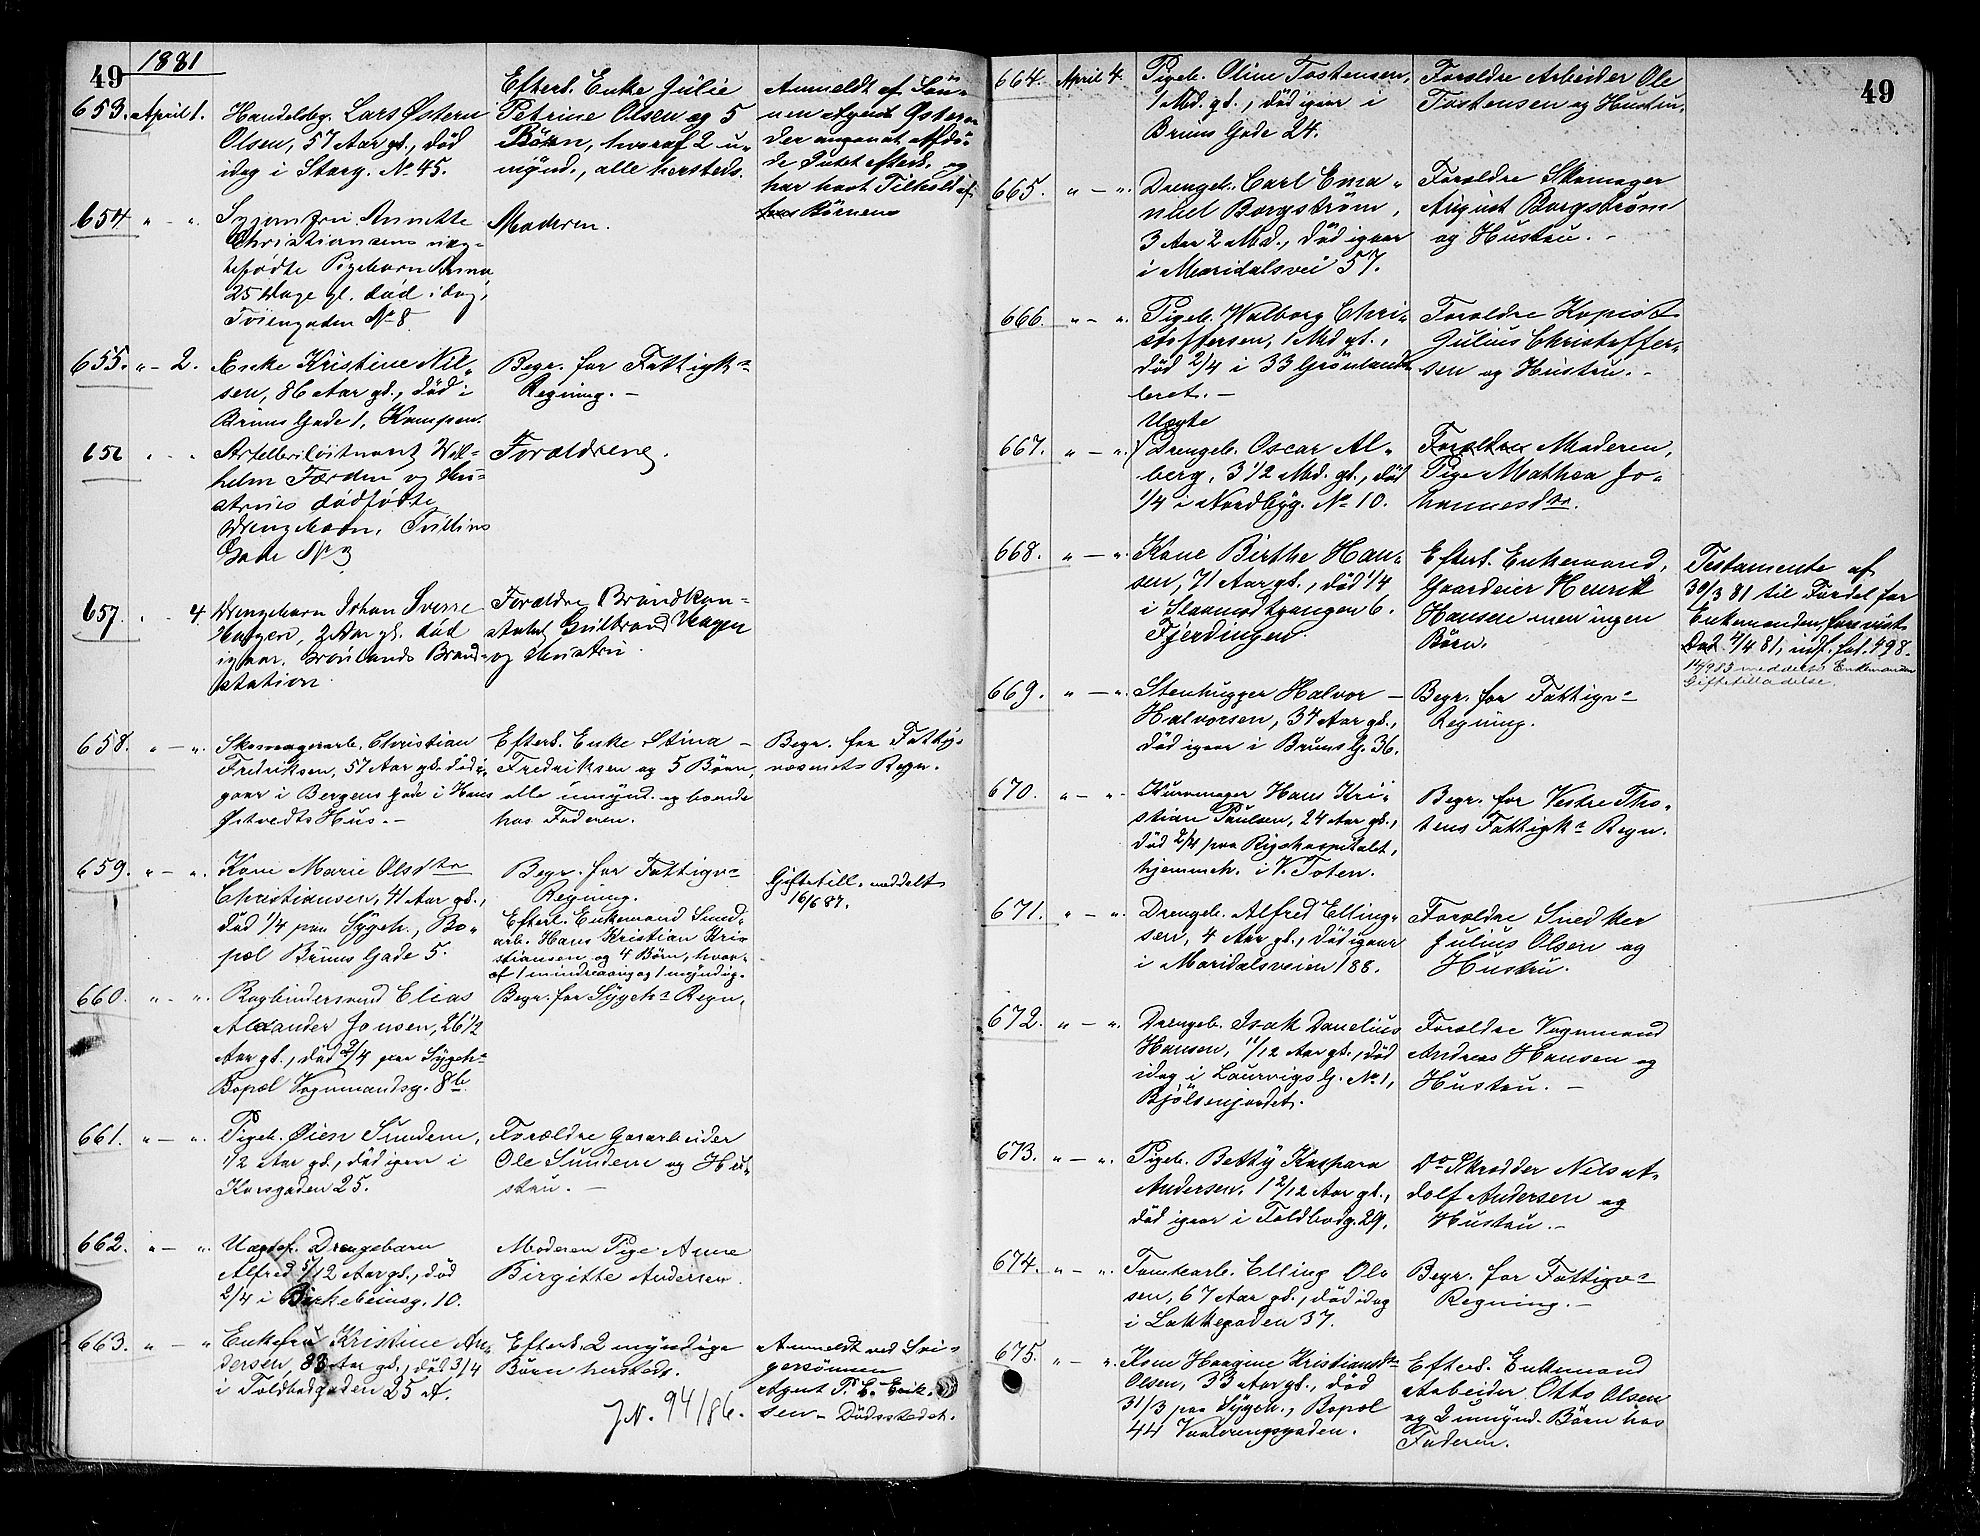 49 1881
653. April 1. Handelsbg. Lars Østern
Olsen, 57 Aar gl., død
idag i Storg. No 45.
Efterl. Enke Julie
Petrine Olsen og 5
Børn, hvoraf 2 u-
mynd., alle hersteds.
Anmeldt af Søn-
nen Agent
har havt Tilhold
hos Børnene
654 " - " Annette
Christiansens uæg-
tefødte Pigebarn Anna
25 Dage gl. død idag,
Tøiengaden No 8.
Moderen.
655. " - 2. Enke Kristine Nil-
sen, 86 Aar gl., død i
Bruns Gade 1, Kampen.
Begr. for Fattigk.
Regning. -
656 " - " Artillerilöitnant Wil-
helm Færden og Hu-
strues dødfødte
Drengebarn, Tullins
Gade No 3
Forældrene.
657. " - 4 Drengebarn Johan Sverre
Hagen, 2 Aar gl. død
igaar. Grønlands Brand-
station.
Forældre Brandkon-
stabel Gulbrand Hagen
og Hustru.
658. " - " Skomagerarb. Christian
Fredriksen, 57 Aar gl. død i-
gaar i Bergens Gade i Hans
Østvedts Hus. -
Efterl. Enke Stina -
Fredriksen og 5 Børn,
alle umynd. og boende
hos Faderen.
Begr. for Fattig-
væsenets Regn.
659. " - " Kone Marie Olsdtr
Christiansen, 41 Aar gl.,
død 1/4 paa Sygeh., Bo-
pæl Bruns Gade 5.
Begr. for Fattigv.
Regning.
Efterl. Enkemand Smed-
arb. Hans Kristian Kri-
stiansen og 4 Børn, hvor-
af 1 mindreaarig og 1 myndig.
Giftetill. meddelt
16/6 87.
660. " - " Bogbindersvend Elias
Alexander Jonsen, 26 1/2
Aar gl., død 2/4 paa Sygeh.
Bopæl Vognmandsg. 8b.
Begr. for Sygeh. Regn.
661. " - " Pigeb. Øien Sundem,
1/2 Aar gl., død igaar i
Korsgaden 25.
Forældre Gasarbeider
Ole Sundem og Hu-
stru. -
662. " - " Uægtef. Drengebarn
Alfred 5/12 Aar gl., død
2/4 i Birkebeinerg. 10.
Moderen Pige Anne
Birgitte Andersen.
663. " - " Enkefru Kristine An-
dersen, 88 Aar gl., død 3/4
i Toldbodgaden 25 A.
Efterl. 2 myndige
Børn hersteds.
JN. 94/86.
Anmeldt ved Svi-
gersønnen
Agent P. C. Erik-
sen - Dødsstedet.
49
664. April 4. Pigeb. Oline Tostensen,
1 Md. gl., død igaar i
Bruns Gade 24.
Forældre Arbeider Ole
Tostensen og Hustru.
665. " - " Drengeb. Carl Ema-
nuel Borgstrøm,
3 Aar 2 Md., død igaar
i Maridalsvei 57.
Forældre Skomager
August Borgstrøm
og Hustru. -
666. " - " Pigeb. Walborg Chri-
stoffersen, 1 Md gl.,
død 2/4 i 33 Grønlands
leret. -
Forældre Kopist
Julius Christoffer-
sen og Hustru. -
667. " - " Uægte
Drengeb. Oscar Al-
berg, 3 1/2 Md. gl., død
1/4 i Nordbyg. No 10.
Forældre Moderen,
Pige Mathea Jo-
hannesdtr.
668. " - " Kone Birthe Han-
sen, 71 Aar gl., død 1/4
i Slaamotgangen 6.
Fjerdingen.
Efterl. Enkemand,
Gaardeier Henrik
Hansen men ingen
Børn.
Testamente af
30/3 81 til Fordel for
Enkemanden, forevist
Ded. 4/4 81, indf. fol. 498.
meddelt Enkemanden
Giftetilladelse.
669. " - " Stenhugger Halvor -
Halvorsen, 34 Aar gl.,
død igaar i Bruns G. 36.
Begr. for Fattigv.
Regning.
670. " - " Kurvmager Hans Kri-
stian Paulsen, 24 Aar gl.,
død 2/4 paa Rigshospitalet,
hjemmeh. i V. Toten.
Begr. for Vestre Tho-
tens Fattigk. Regn.
671. " - " Drengeb. Alfred Elling-
sen, 4 Aar gl., død igaar
i Maridalsveien 188.
Forældre Snedker
Julius Olsen og
Hustru.
672. " - " Drengeb. Isak Danelius
Hansen, 11/12 Aar gl., død
idag i Laurvigs G. No 1,
Bjølsenjordet.
Forældre Vognmand
Andreas Hansen og
Hustru. -
673. " - " Pigeb. Betty Kaspara
Andersen, 1 2/12 Aar gl.,
død igaar i Toldbodg. 29.
Do Skrædder Nils A-
dolf Andersen og
Hustru. -
674. " - " Tomtearb. Elling Ol-
sen, 67 Aar gl., død idag
i Lakkegaden 37.
Begr. for Fattigv.
Regning. -
675. " - " Kone Haagine Kristiansdtr
Olsen, 33 Aar gl., død
31/3 paa Sygeh., Bopæl
44 Vaalerengsgaden.
Efterl. Enkemand
Arbeider Otto Olsen
og 2 umynd. Børn hos
Faderen.